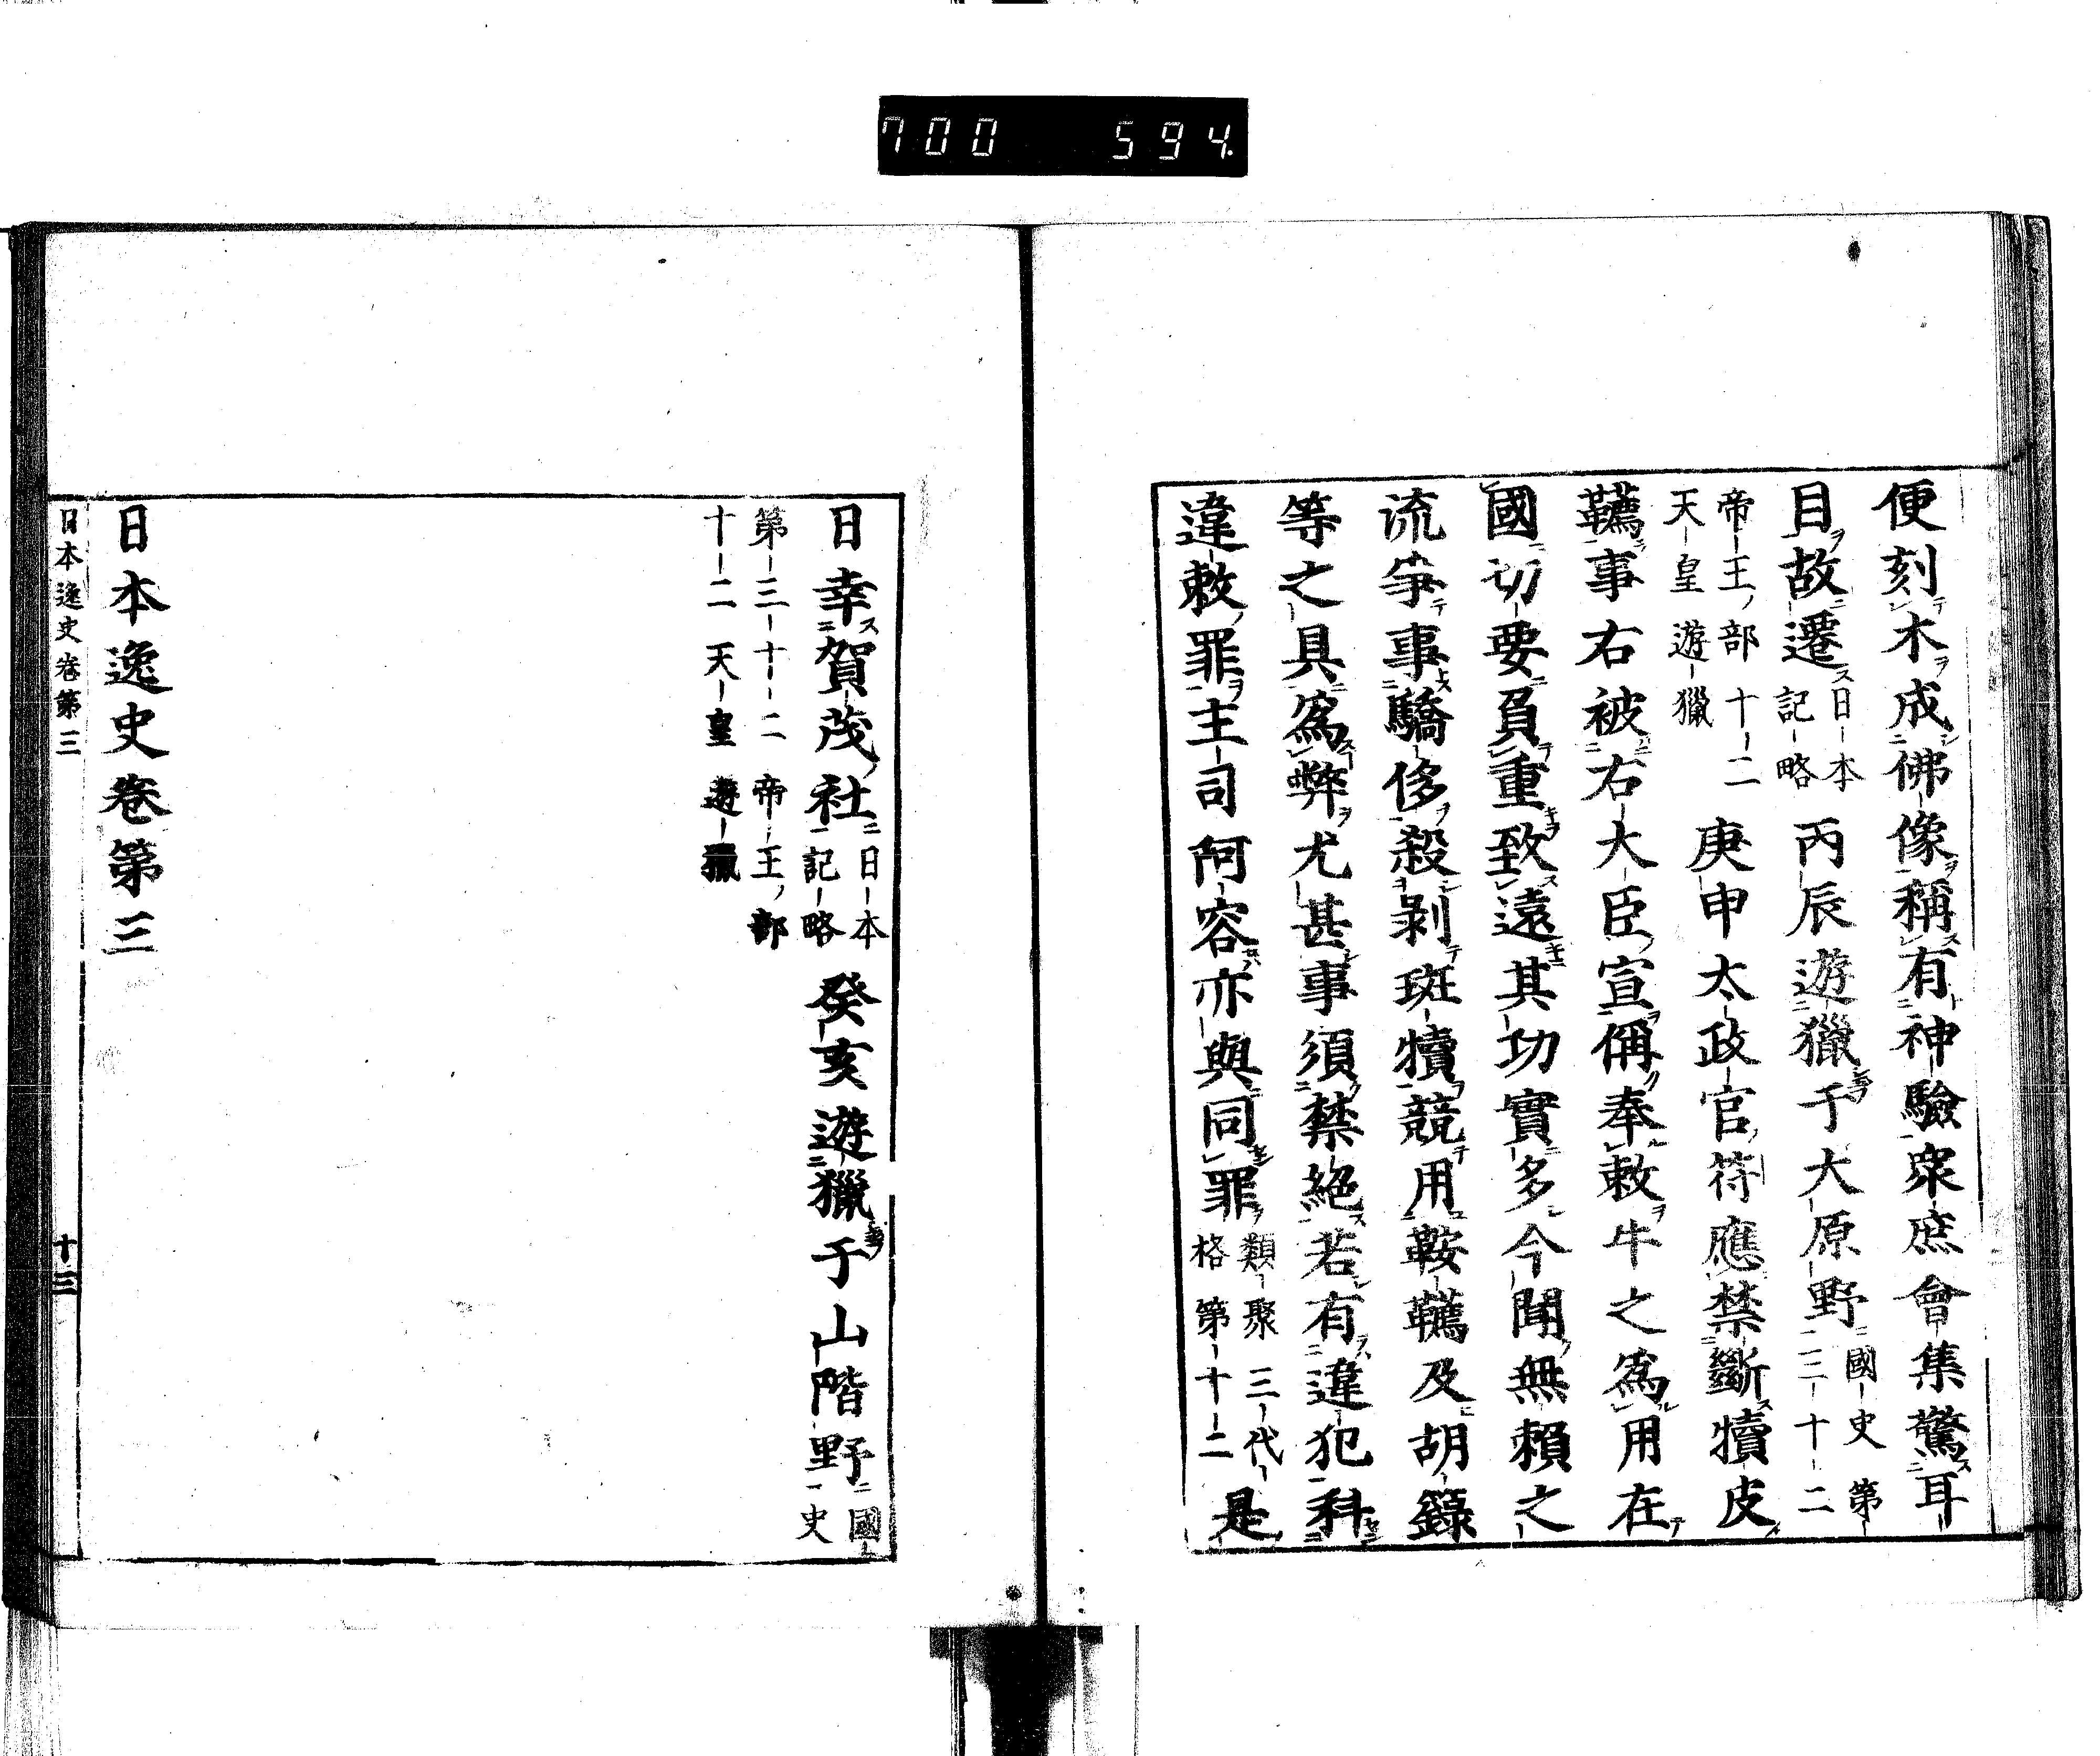 700 594
便刻木成佛像稱有神驗衆庶會集驚耳
目故遷日本記略丙辰遊獵于大原野國史第三十二
帝王部十二天皇遊獵庚申太政官符應禁斷犢皮
韉事右被右大臣宣偁奉敕牛之爲用在
國切要負重致遠其功實多今聞無賴之
流爭事驕侈殺剥斑犢競用鞍韉及胡籙
等之具爲弊尤甚事須禁絕若有違犯科
違敕罪主司阿容亦與同罪類聚三代格第十二是
日幸賀茂社日本記略癸亥遊獵于山階野國史
第三十二帝王部十二天皇遊獵
日本逸史卷第三
日本逸史卷第三 十三